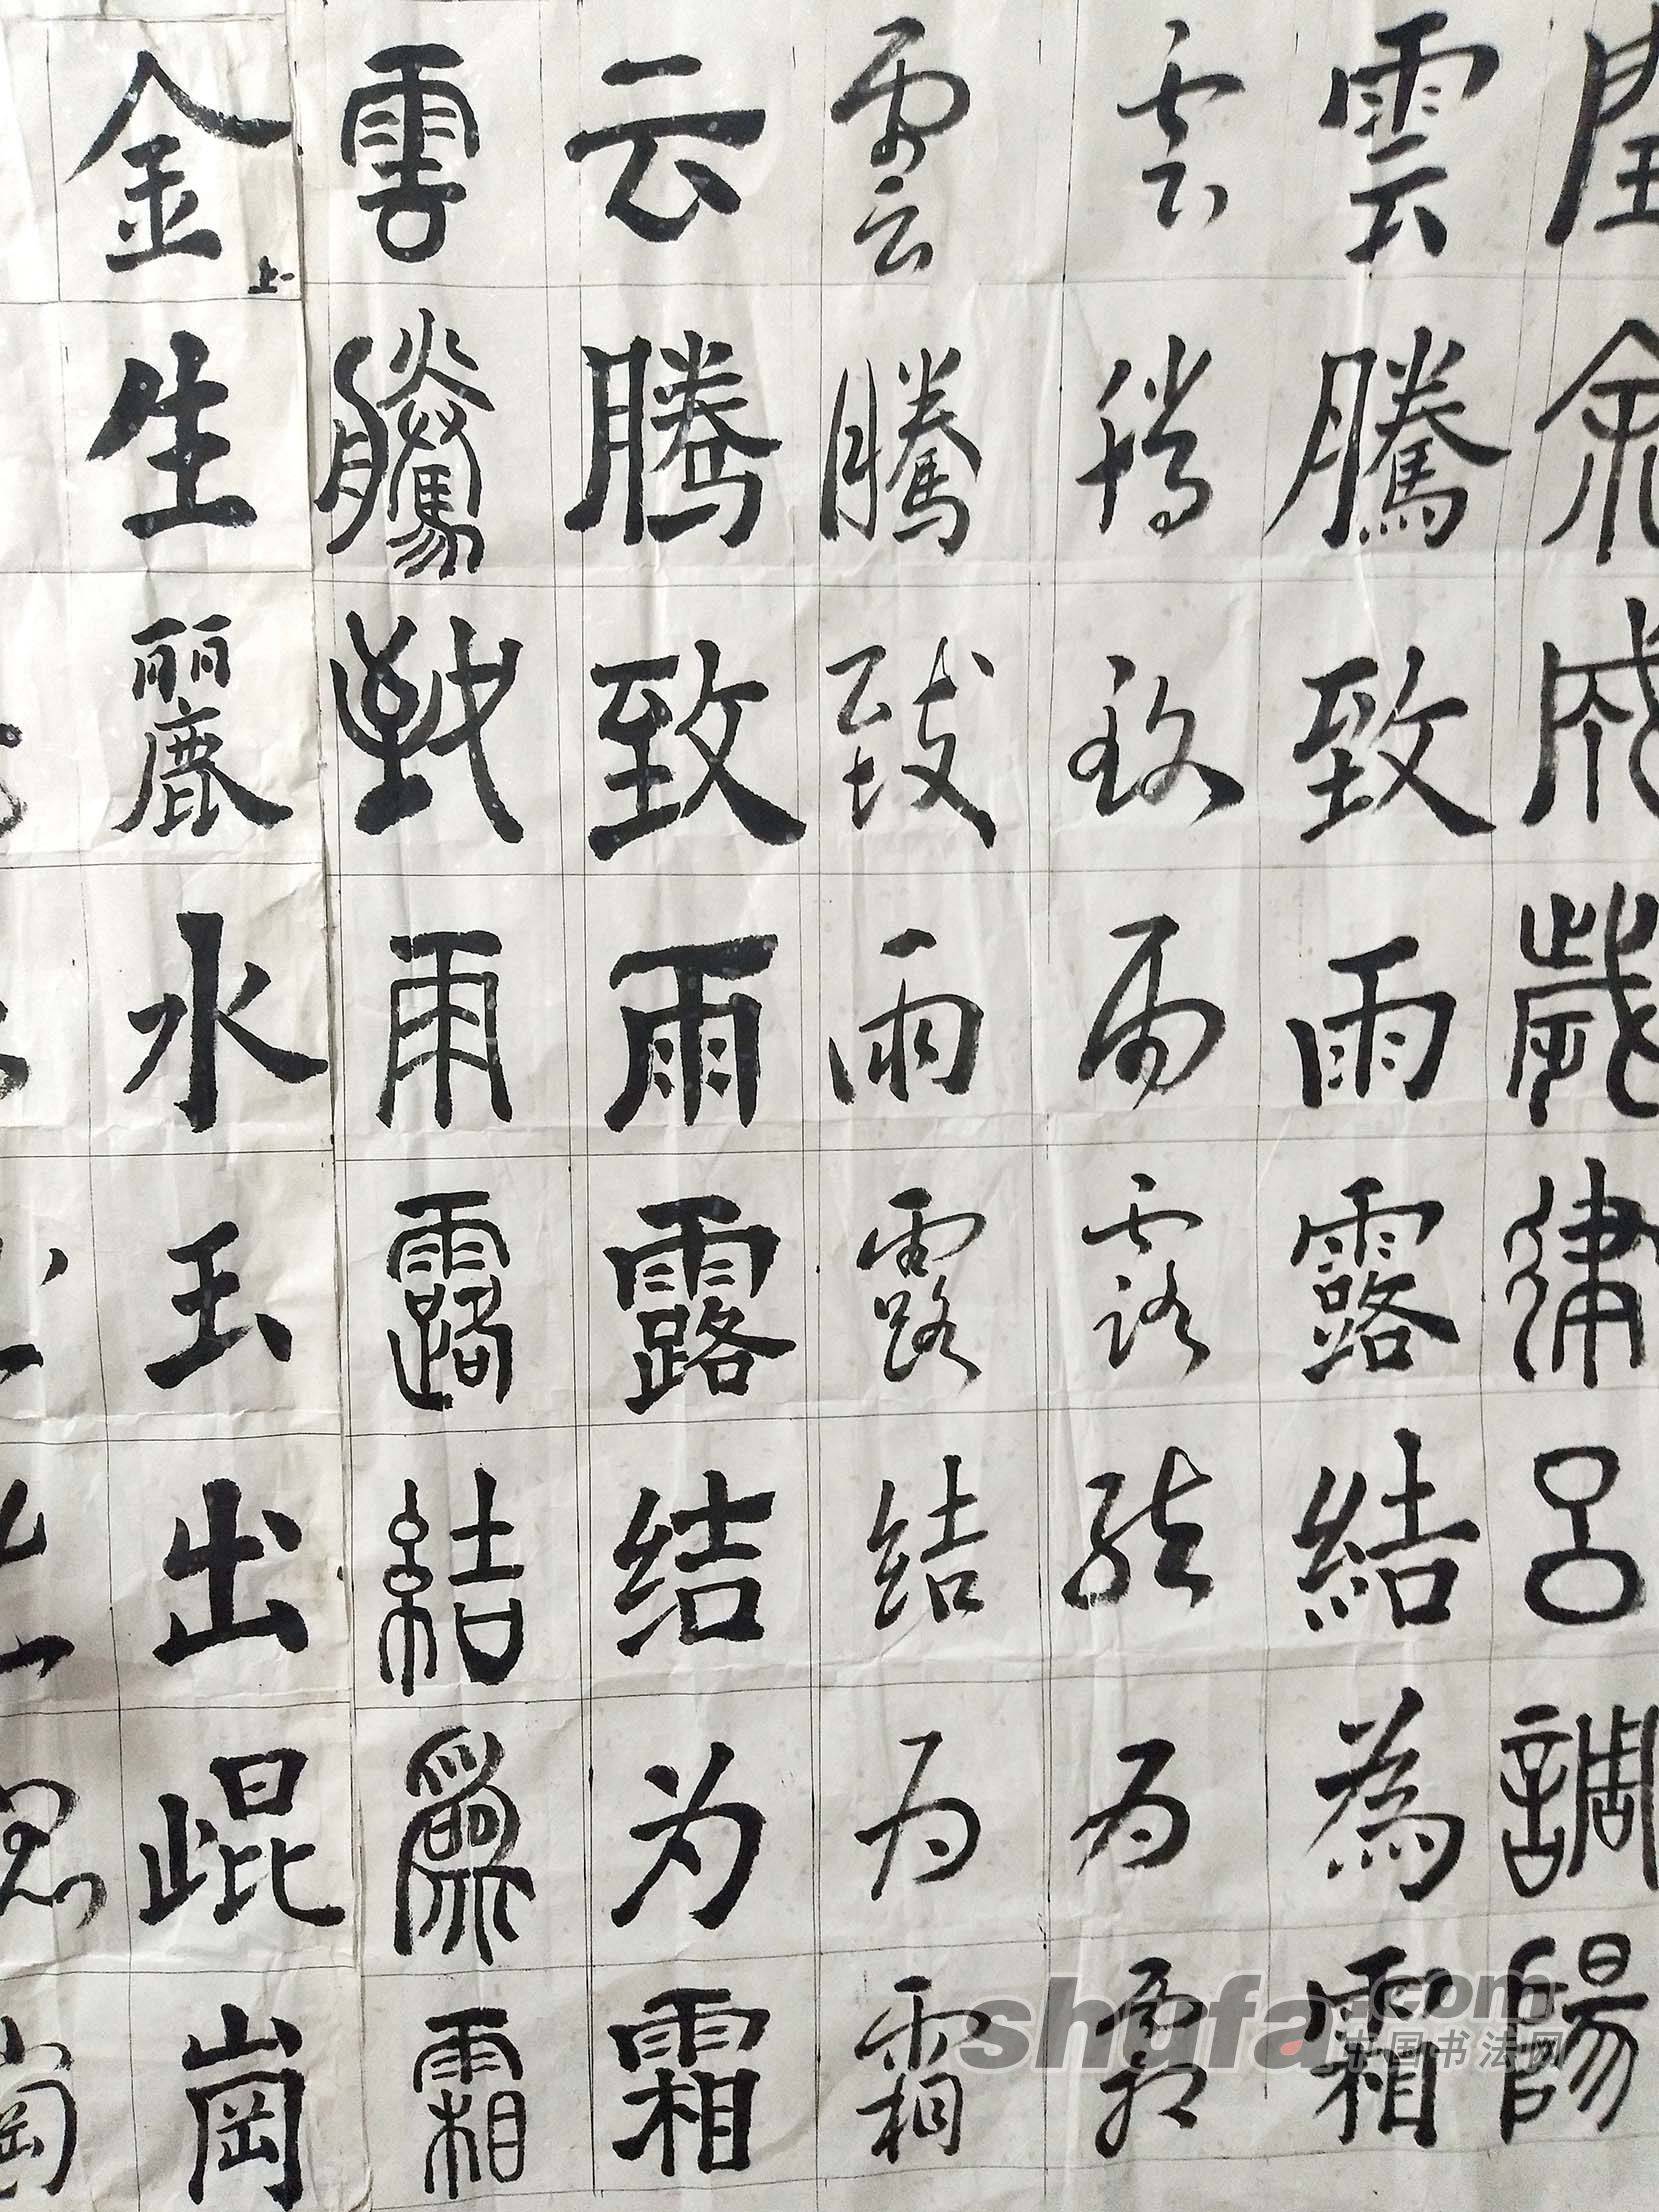 閏余成歲律呂調陽
雲騰致雨露結為霜
雲騰致雨露結为霜
雲騰致雨露結为霜
云腾致雨露结为霜
雲騰致雨露結爲霜
金生麗水玉出崐崗
上
shufa.com
中国书法网